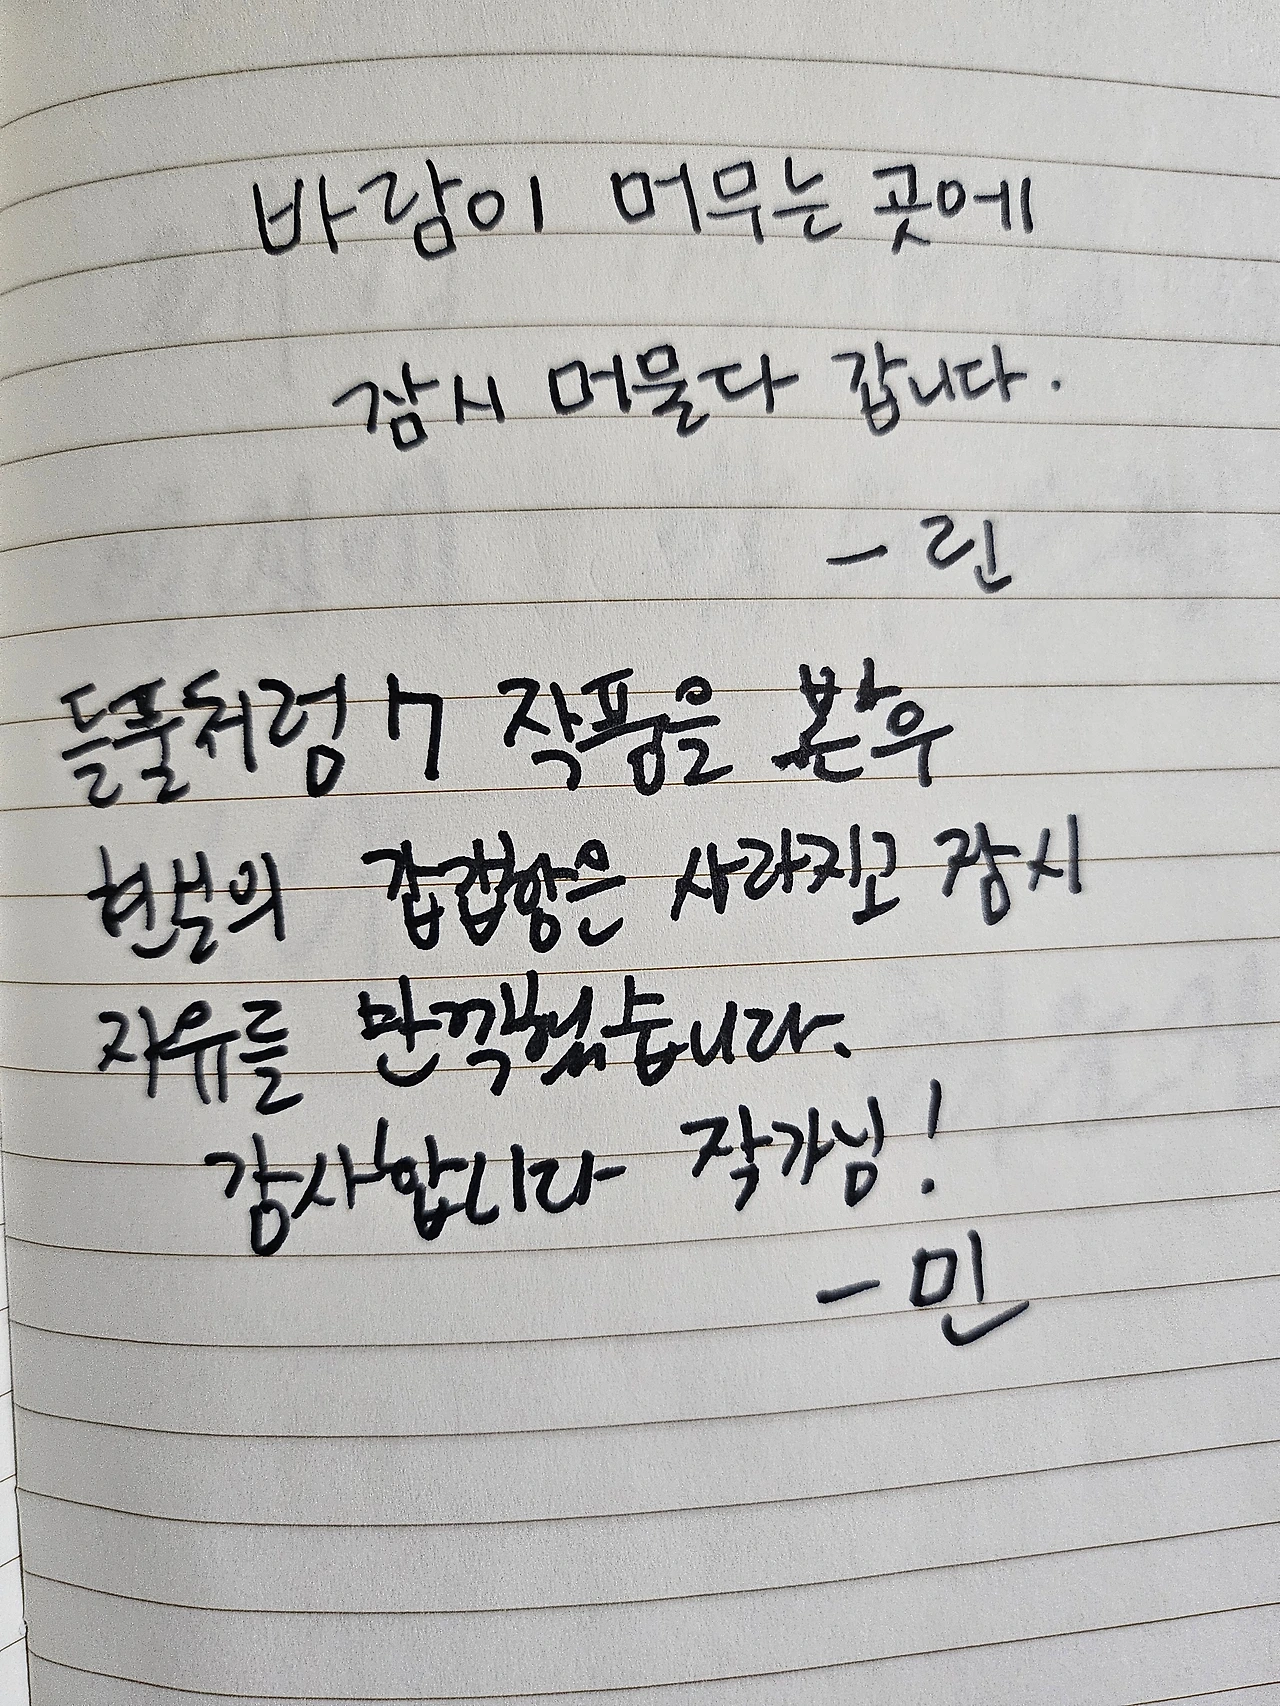 바람이 머무는 곳에
잠시 머물다 갑니다.
- 린
들풀처럼 7 작품을 본 후
현실의 갑갑함은 사라지고 잠시
자유를 만끽했습니다.
감사합니다 작가님!
- 민